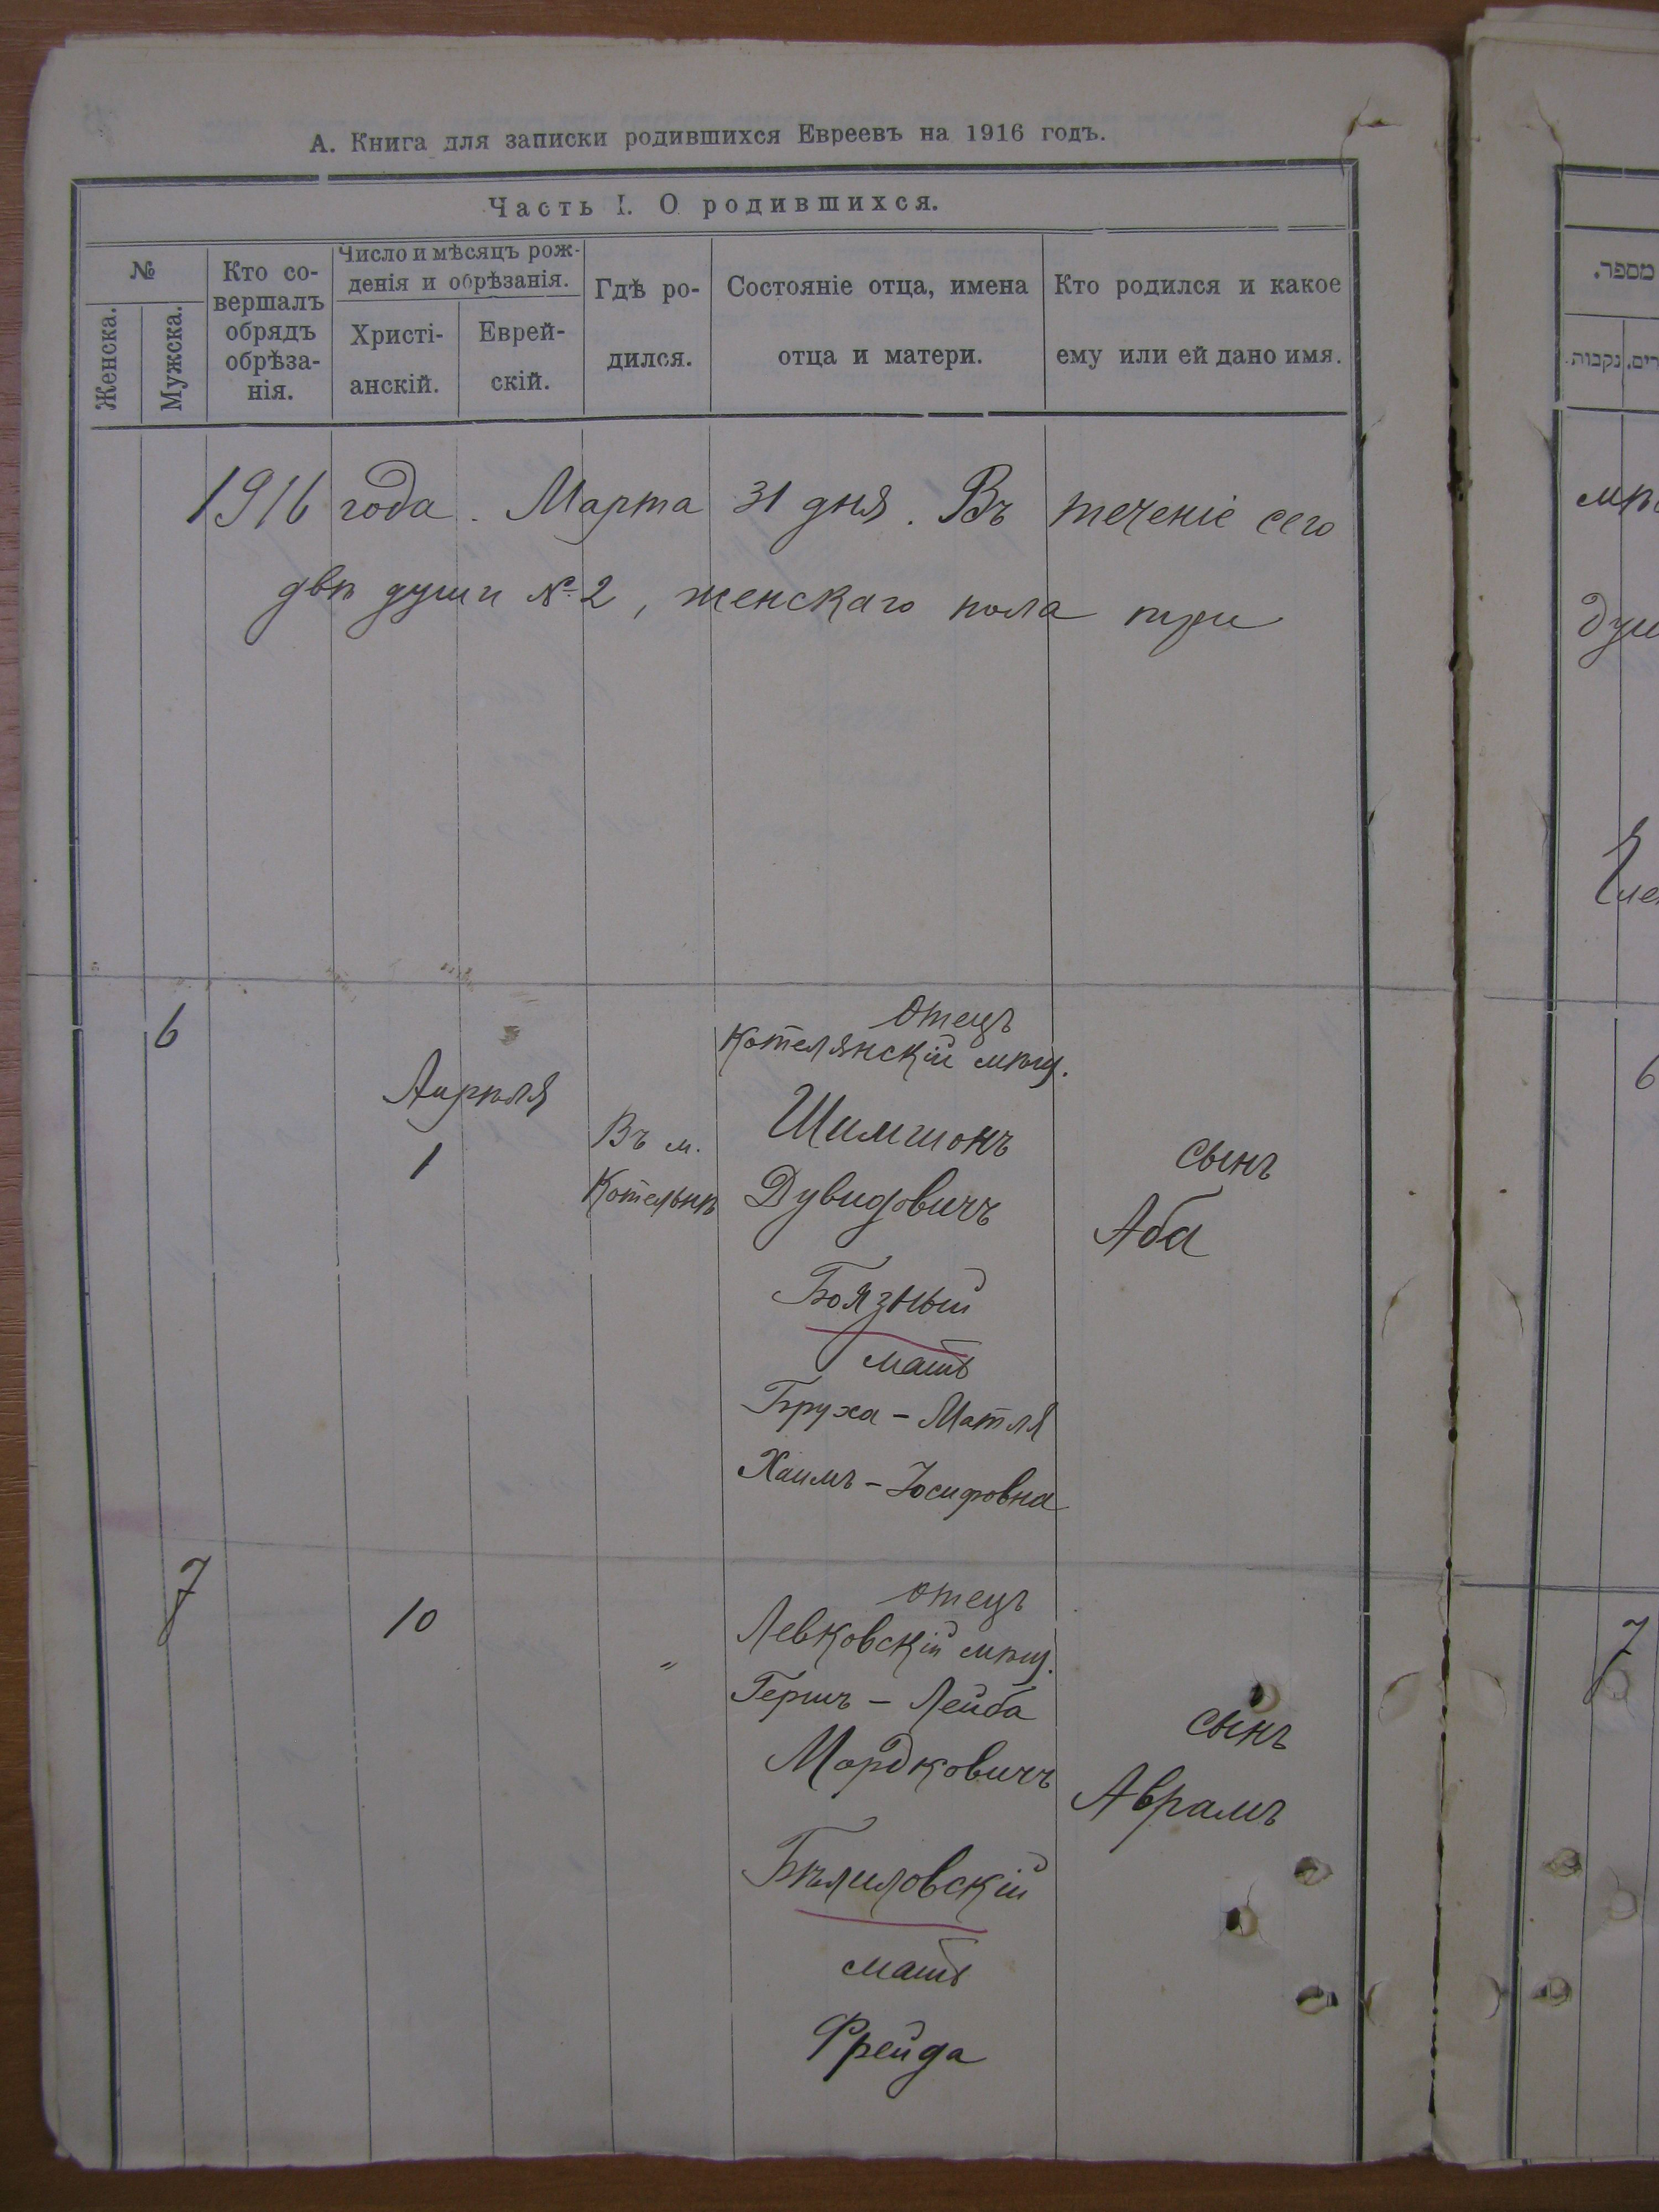 А. Книга для записки родившихся Евреевъ на 1916 годъ.
Часть I. О родившихся.
№
Женска.
Мужска.
Кто со-
вершалъ
обрядъ
обрѣза-
нія.
Число и мѣсяцъ рож-
денія и обрѣзанія.
Христі-
анскій.
Еврей-
скій.
Гдѣ ро-
дился.
Состояніе отца, имена
отца и матери.
Кто родился и какое
ему или ей дано имя.
1916 года. Марта 31 дня. Въ теченіе сего
двѣ души № 2, женскаго пола три
6
Апрѣля
1
Въ м.
Котельнѣ
Отецъ
Котелянскій мѣщ.
Шимшонъ
Дувидовичъ
Боязный
мать
Бруха - Матля
Хаимъ - Іосифовна
сынъ
Аба
7
10
"
отецъ
Левковскій мѣщ.
Гершъ - Лейба
Мордковичъ
Бѣлиловскій
мать
Фрейда
сынъ
Аврамъ
מספר.
נקבות.
6
7